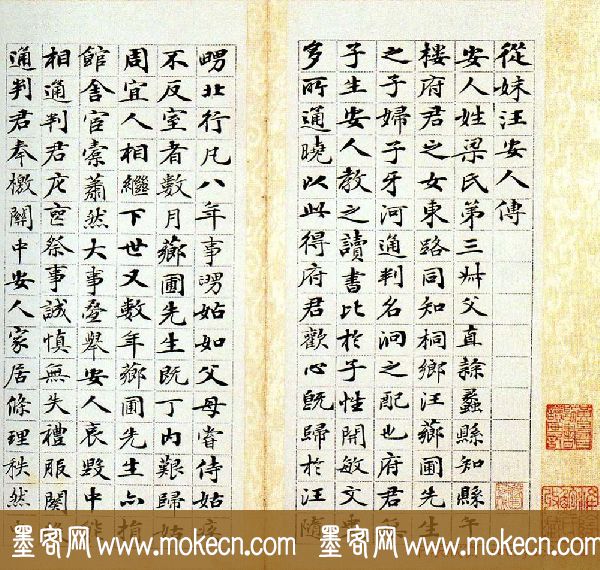 從妹汪安人傳
安人姓梁氏第三叔父直隸蠡縣知縣午
樓府君之女東路同知桐鄉汪薌圃先生
之子婦子牙河通判名泂之配也府君無
子生安人教之讀書比於子性開敏文史
多所通曉以此得府君歡心既歸於汪隨
舅北行凡八年事舅姑如父母嘗侍姑疾
不反室者數月薌圃先生既丁內艱歸姑
周宜人相繼下世又數年薌圃先生亦捐
館舍宦橐蕭然大事疊舉安人哀毀中能
相通判君庀喪祭事誠慎無失禮服闋
通判君奉檄關中安人家居條理秩然
墨客网 www.mokecn.com 墨客网 www.mokecn.com